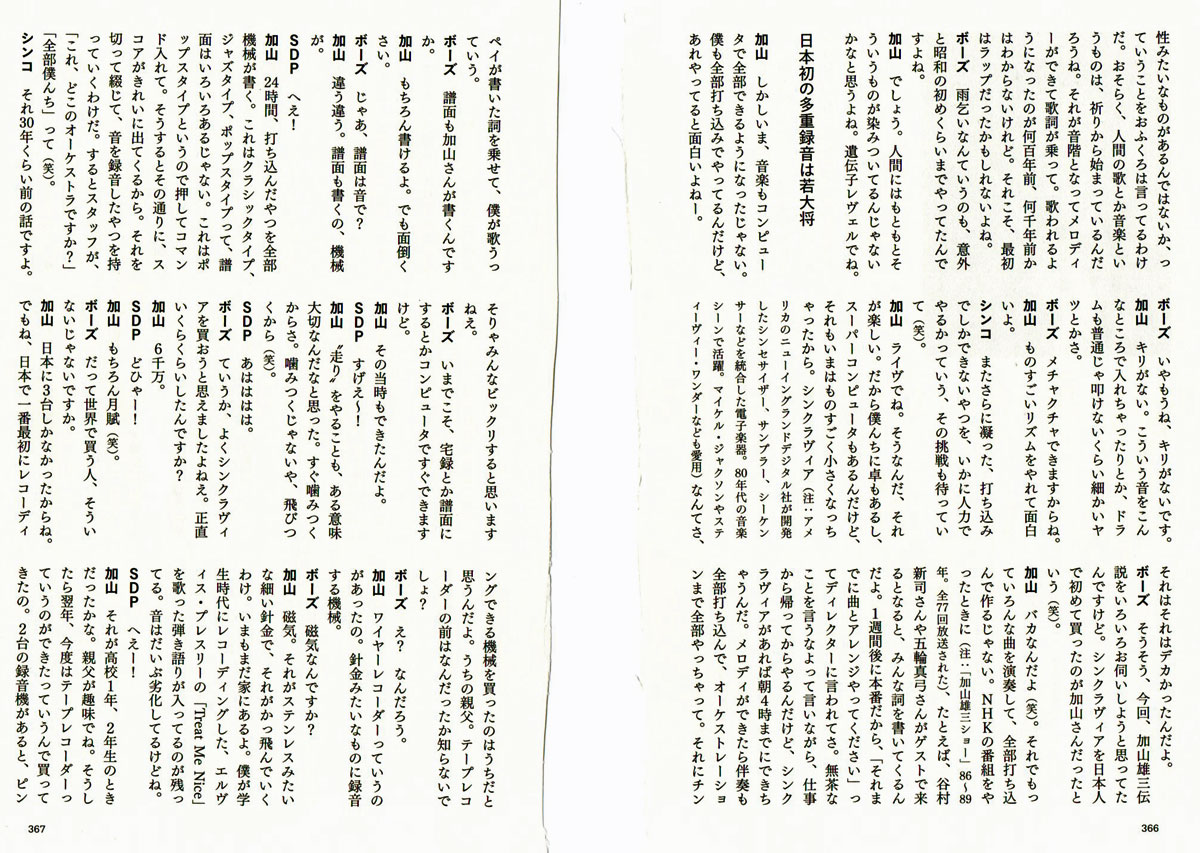 性みたいなものがあるんではないか、っ
ていうことをおふくろは言ってるわけ
だ。おそらく、人間の歌とか音楽とい
うものは、祈りから始まっているんだ
ろうね。それが音階となってメロディ
ーができて歌詞が乗って。歌われるよ
うになったのが何百年前、何千年前か
はわからないけれど。それこそ、最初
はラップだったかもしれないよね。
ボーズ　雨乞いなんていうのも、意外
と昭和の初めくらいまでやってたんで
すよね。
加山　でしょう。人間にはもともとそ
ういうものが染みついてるんじゃない
かなと思うよね。遺伝子レヴェルでね。
日本初の多重録音は若大将
加山　しかしいま、音楽もコンピュー
タで全部できるようになったじゃない。
僕も全部打ち込みでやってるんだけど、
あれやってると面白いよねー。
ボーズ　いやもうね、キリがないです。
加山　キリがない。こういう音をこん
なところで入れちゃったりとか、ドラ
ムも普通じゃ叩けないくらい細かいヤ
ツとかさ。
ボーズ　メチャクチャできますからね。
加山　ものすごいリズムをやれて面白
いよ。
シンコ　またさらに凝った、打ち込み
でしかできないやつを、いかに人力で
やるかっていう、その挑戦も待ってい
て（笑）。
加山　ライヴでね。そうなんだ、それ
が楽しい。だから僕んちに卓もあるし、
スーパーコンピュータもあるんだけど、
それもいまはものすごく小さくなっち
ゃったから。シンクラヴィア（注：アメ
リカのニューイングランドデジタル社が開発
したシンセサイザー、サンプラー、シーケン
サーなどを統合した電子楽器。80年代の音楽
シーンで活躍。マイケル・ジャクソンやステ
ィーヴィー・ワンダーなども愛用）なんてさ、
それはそれはデカかったんだよ。
ボーズ　そうそう、今回、加山雄三伝
説をいろいろお伺いしようと思ってた
んですけど。シンクラヴィアを日本人
で初めて買ったのが加山さんだったと
いう（笑）。
加山　バカなんだよ（笑）。それでもっ
ていろんな曲を演奏して、全部打ち込
んで作るじゃない。NHKの番組をや
ったときに（注：「加山雄三ショー」86〜89
年。全77回放送された）、たとえば、谷村
新司さんや五輪真弓さんがゲストで来
るとなると、みんな詞を書いてくるん
だよ。1週間後に本番だから、「それま
でに曲とアレンジやってください」っ
てディレクターに言われてさ。無茶な
ことを言うなよって言いながら、仕事
から帰ってからやるんだけど、シンク
ラヴィアがあれば朝4時までにできち
ゃうんだ。メロディができたら伴奏も
全部打ち込んで、オーケストレーショ
ンまで全部やっちゃって。それにチン
366
ペイが書いた詞を乗せて、僕が歌うっ
ていう。
ボーズ　譜面も加山さんが書くんです
か。
加山　もちろん書けるよ。でも面倒く
さい。
ボーズ　じゃあ、譜面は音で？
加山　違う違う。譜面も書くの、機械
が。
SDP　へえ！
加山　24時間、打ち込んだやつを全部
機械が書く。これはクラシックタイプ、
ジャズタイプ、ポップスタイプって、譜
面はいろいろあるじゃない。これはポ
ップスタイプというので押してコマン
ド入れて。そうするとその通りに、ス
コアがきれいに出てくるから。それを
切って綴じて、音を録音したやつを持
っていくわけだ。するとスタッフが、
「これ、どこのオーケストラですか？」
「全部僕んち」って（笑）。
シンコ　それ30年くらい前の話ですよ。
そりゃみんなビックリすると思います
ねえ。
ボーズ　いまでこそ、宅録とか譜面に
するとかコンピュータですぐできます
けど。
加山　その当時もできたんだよ。
SDP　すげえ〜！
加山　〝走り〟をやることも、ある意味
大切なんだなと思った。すぐ噛みつく
からさ。噛みつくじゃないや、飛びつ
くから（笑）。
SDP　あはははは。
ボーズ　ていうか、よくシンクラヴィ
アを買おうと思えましたよねえ。正直
いくらくらいしたんですか？
加山　6千万。
SDP　どひゃー！
加山　もちろん月賦（笑）。
ボーズ　だって世界で買う人、そうい
ないじゃないですか。
加山　日本に3台しかなかったからね。
でもね、日本で一番最初にレコーディ
ングできる機械を買ったのはうちだと
思うんだよ。うちの親父。テープレコ
ーダーの前はなんだったか知らないで
しょ？
ボーズ　え？　なんだろう。
加山　ワイヤーレコーダーっていうの
があったの。針金みたいなものに録音
する機械。
ボーズ　磁気なんですか？
加山　磁気。それがステンレスみたい
な細い針金で、それがかっ飛んでいく
わけ。いまもまだ家にあるよ。僕が学
生時代にレコーディングした、エルヴ
ィス・プレスリーの「Treat Me Nice」
を歌った弾き語りが入ってるのが残っ
てる。音はだいぶ劣化してるけどね。
SDP　へえー！
加山　それが高校1年、2年生のとき
だったかな。親父が趣味でね。そうし
たら翌年、今度はテープレコーダーっ
ていうのができたっていうんで買って
きたの。2台の録音機があると、ピン
367